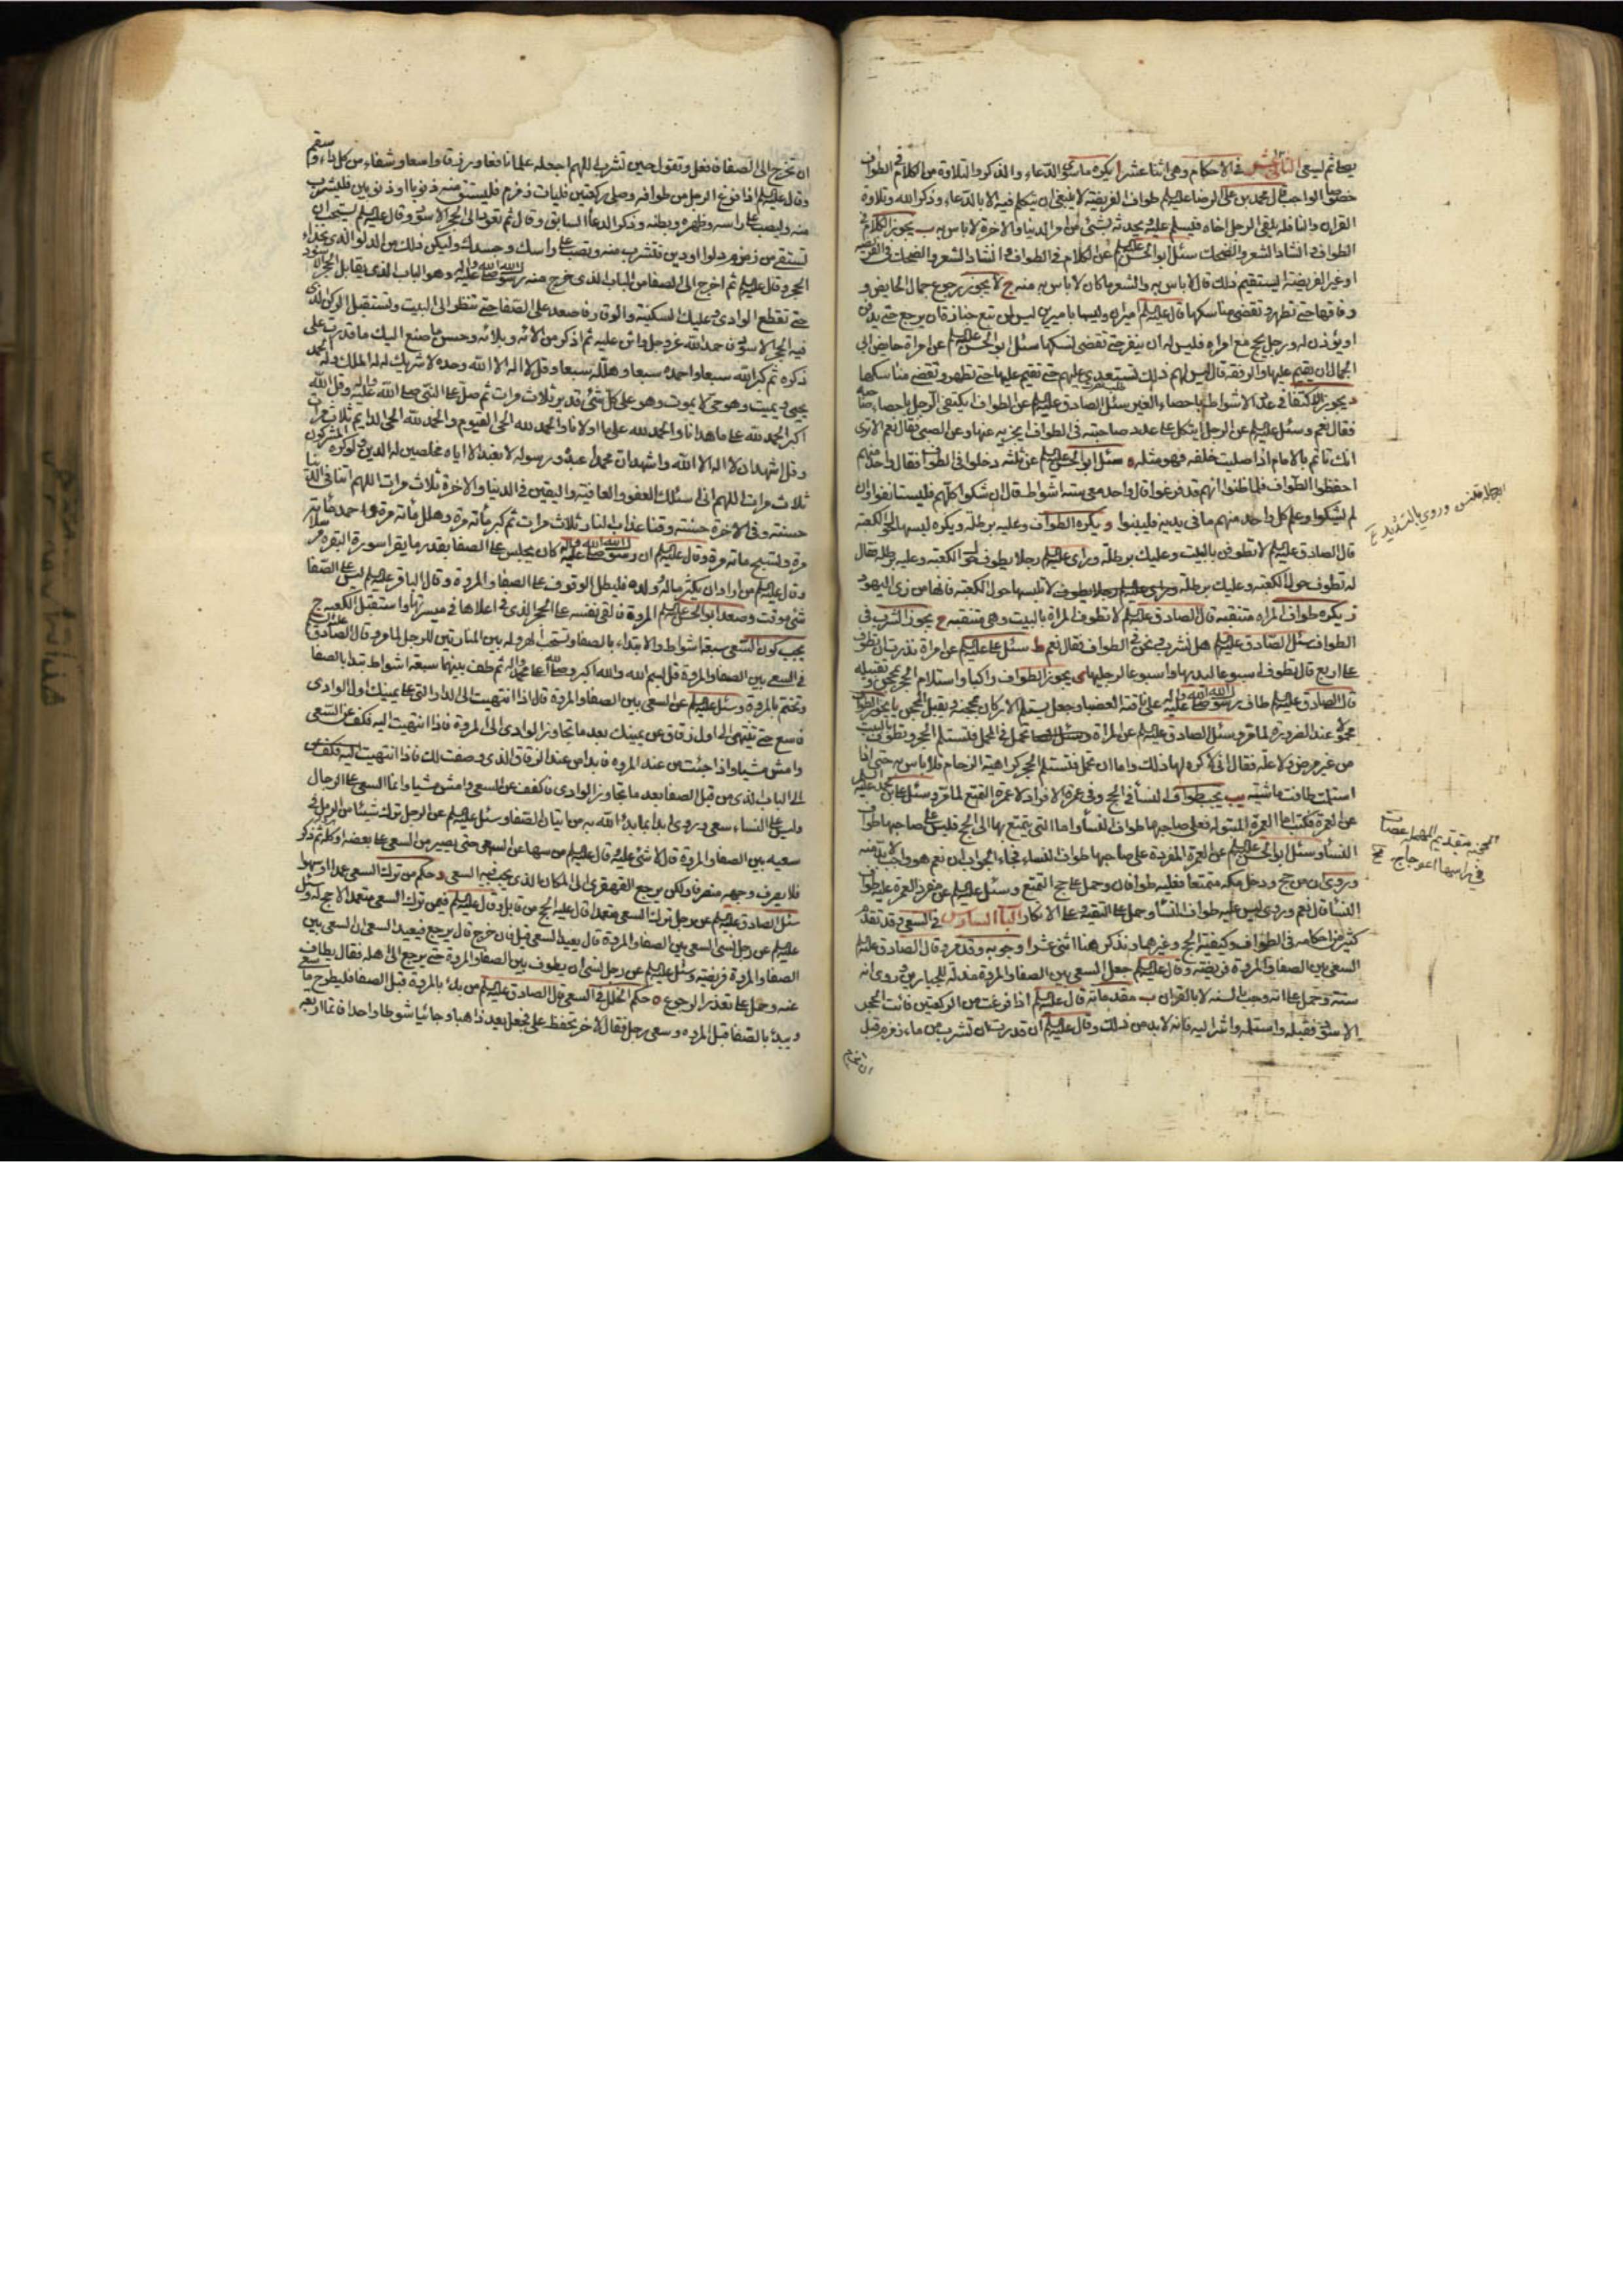 يصلي ثم يسعى الثاني عشر في الاحكام وهي اثنا عشر ا يكره ما سوى الدعاء والذكر والتلاوة من الكلام في الطواف
خصوصا الواجب قال محمد بن علي الرضا عليه السلم طواف الفريضة لا ينبغي ان يتكلم فيه الا بالدعاء وذكر الله وتلاوة
القران والنافلة يلقى الرجل اخاه فيسلم عليه ويحدثه بشئ من امر الدنيا والاخرة لا باس به ب يجوز الكلام في
الطواف وانشاد الشعر والضحك سئل ابو الحسن عليه السلم عن الكلام في الطواف وانشاد الشعر والضحك في الفريضة
او غير الفريضة ايستقيم ذلك قال لا باس به والشعر ما كان لا باس به منه ج لا يجوز رجوع جمال الحايض و
رفاقها حتى تطهر وتقضي مناسكها قال عليه السلم اميران وليسا باميرين ليس لمن تبع جنازة ان يرجع حتى يدفن
او يؤذن له ورجل يحج مع امراة فليس له ان ينفر حتى تقضي نسكها سئل ابو الحسن عليه السلم عن امراة حايض ابى
الجمال ان يقيم عليها والرفقة قال ليس لهم ذلك تستعدي عليهم حتى تقيم عليها حتى تطهر وتقضي مناسكها
د يجوز الاكتفا في عدد الاشواط باحصاء الغير سئل الصادق عليه السلم عن الطواف ايكتفي الرجل باحصاء صاحبه
فقال نعم وسئل عليه السلم عن الرجل ايتكل على عدد صاحبته في الطواف ايجزيه عنها وعن الصبي فقال نعم الا ترى
انك تاتم بالامام اذا صليت خلفه فهو مثله ه سئل ابو الحسن عليه السلم عن ثلثة دخلوا في الطواف فقال واحد منهم
احفظوا الطواف فلما ظنوا انهم قد فرغوا قال واحد معي ستة اشواط قال ان شكوا كلهم فليستانفوا وان
لم يشكوا وعلم كل واحد منهم ما في يديه فليبنوا و يكره الطواف وعليه برطلة ويكره لبسها حول الكعبة
قال الصادق عليه السلم لا تطوفن بالبيت وعليك برطلة وراى عليه السلم رجلا يطوف حول الكعبة وعليه برطلة فقال
له تطوف حول الكعبة وعليك برطلة لا تلبسها حول الكعبة فانها من زي اليهود
ز يكره طواف المراة متنقبة قال الصادق عليه السلم لا تطوف المراة بالبيت وهي متنقبة ح يجوز الشرب في
الطواف سئل الصادق عليه السلم هل نشرب ونحن في الطواف فقال نعم ط سئل علي عليه السلم عن امراة نذرت ان تطوف
على اربع قال تطوف اسبوعا ليديها واسبوعا لرجليها ى يجوز الطواف راكبا واستلام الحجر بمحجن وتقبيله
قال الصادق عليه السلم طاف رسول الله صلى الله عليه واله على ناقته العضباء وجعل يستلم الاركان بمحجنه ويقبل المحجن يا يجوز الطواف
محمولا عند الضرورة لما مر وسئل الصادق عليه السلم عن المراة تحمل في المحمل فتستلم الحجر وتطوف بالبيت
من غير مرض ولا علة فقال اني لاكره لها ذلك واما ان تحمل فتستلم الحجر كراهية الزحام فلا باس به حتى اذا
استلمت طافت ماشية يب يجب طواف النسا في الحج وفي عمرة الافراد لا عمرة التمتع لما مر وسئل
عن العمرة فكتب اما العمرة المبتولة فعلى صاحبها طواف النسا واما التي يتمتع بها الى الحج فليس على صاحبها طواف
النسا وسئل ابو الحسن عليه السلم عن العمرة المفردة على صاحبها طواف النساء فجاء الجواب ان نعم هو واجب لا بد منه
وروي ان من حج ودخل مكة متمتعا فعليه طوافان وحمل على حج التمتع وسئل عليه السلم عن مفرد العمرة عليه طواف
النسا قال نعم وروي ليس عليه طواف النسا وحمل على التقية وعلى الانكار الباب السادس في السعي قد تقدم
كثير من احكامه في الطواف وكيفية الحج وغيرهما ونذكر هنا اثني عشر ا وجوبه وقد مر وقال الصادق عليه السلم
السعي بين الصفا والمروة فريضة وقال عليه السلم جعل السعي بين الصفا والمروة مذلة للجبارين وروي انه
سنة وحمل على انه وجب بالسنة لا بالقران ب مقدماته قال عليه السلم اذا فرغت من الركعتين فائت الحجر
الاسود فقبله واستلمه واشر اليه فانه لا بد من ذلك وقال عليه السلم ان قدرت ان تشرب من ماء زمزم قبل
ان تخرج
البرطلة قلنس وروي بالتشديد
المحجنة بتقديم المهملة عصا
في راسها اعوجاج
ان تخرج الى الصفا فافعل وتقول حين تشرب اللهم اجعله علما نافعا ورزقا واسعا وشفاء من كل داء وسقم
وقال عليه السلم اذا فرغ الرجل من طوافه وصلى ركعتين فليات زمزم فليستق منه ذنوبا او ذنوبين فليشرب
منه وليصب على راسه وظهره وبطنه وذكر الدعا السابق وقال ثم تعود الى الحجر الاسود وقال عليه السلم يستحب ان
تستقي من زمزم دلوا او دلوين فتشرب منه وتصب على راسك وجسدك وليكن ذلك من الدلو الذي بحذاء
الحجر وقال عليه السلم ثم اخرج الى الصفا من الباب الذي خرج منه رسول الله صلى الله عليه واله وهو الباب الذي يقابل الحجر الاسود
حتى تقطع الوادي وعليك السكينة والوقار فاصعد على الصفا حتى تنظر الى البيت وتستقبل الركن الذي
فيه الحجر الاسود فاحمد الله عز وجل واثن عليه ثم اذكر من الائه وبلائه وحسن ما صنع اليك ما قدرت على
ذكره ثم كبر الله سبعا واحمده سبعا وهلله سبعا وقل لا اله الا الله وحده لا شريك له له الملك وله الحمد
يحيي ويميت وهو حي لا يموت وهو على كل شئ قدير ثلاث مرات ثم صل على النبي صلى الله عليه واله وقل الله
اكبر الحمد لله على ما هدانا والحمد لله على ما اولانا والحمد لله الحي القيوم والحمد لله الحي الدايم ثلاث مرات
وقل اشهد ان لا اله الا الله واشهد ان محمدا عبده ورسوله لا نعبد الا اياه مخلصين له الدين ولو كره المشركون
ثلاث مرات اللهم اني اسئلك العفو والعافية واليقين في الدنيا والاخرة ثلاث مرات اللهم اتنا في الدنيا
حسنة وفي الاخرة حسنة وقنا عذاب النار ثلاث مرات ثم كبر مائة مرة وهلل مائة مرة واحمد مائة
مرة وتسبح مائة مرة وقال عليه السلم ان رسول الله صلى الله عليه واله كان يجلس على الصفا بقدر ما يقرا سورة البقرة
وقال عليه السلم من اراد ان يكثر ماله وولده فليطل الوقوف على الصفا والمروة وقال الباقر عليه السلم ليس على الصفا
شئ موقت وصعد ابو الحسن عليه السلم المروة فالقى نفسه على الحجر الذي في اعلاها في ميسرتها واستقبل الكعبة ج
يجب كون السعي سبعة اشواط والابتداء بالصفا وتستحب الهرولة بين المنارتين للرجل لما مر وقال الصادق عليه السلم
في السعي بين الصفا والمروة قل بسم الله والله اكبر وصلى الله على محمد واله ثم طف بينهما سبعة اشواط تبدا بالصفا
وتختم بالمروة وسئل عليه السلم عن السعي بين الصفا والمروة قال اذا انتهيت الى الدار التي على يمينك اول الوادي
فاسع حتى تنتهي الى اول زقاق عن يمينك بعد ما تجاوز الوادي الى المروة فاذا انتهيت اليه فكف عن السعي
وامش مشيا واذا جئت من عند المروة فابدا من عند الزقاق الذي وصفت لك فاذا انتهيت
الى الباب الذي من قبل الصفا بعد ما تجاوز الوادي فاكفف عن السعي وامش مشيا وانما السعي على الرجال
وليس على النساء سعي وروي ابدا بما بدا الله به من اتيان الصفا وسئل عليه السلم عن الرجل ترك شيئا من الرمل في
سعيه بين الصفا والمروة قال لا شئ عليه وقال عليه السلم من سها عن السعي حتى يصير من السعي على بعضه او كله ثم ذكر
فلا يصرف وجهه منصرفا ولكن يرجع القهقرى الى المكان الذي يجب فيه السعي د حكم من ترك السعي عمدا او سهوا
سئل الصادق عليه السلم عن رجل ترك السعي متعمدا قال عليه الحج من قابل وقال عليه السلم فيمن ترك السعي متعمدا لا حج له وسئل
عليه السلم عن رجل نسي السعي بين الصفا والمروة قال يعيد السعي قيل فان خرج قال يرجع فيعيد السعي ان السعي بين
الصفا والمروة فريضة وسئل عليه السلم عن رجل نسي ان يطوف بين الصفا والمروة حتى يرجع الى اهله فقال يطاف
عنه وحمل على تعذر الرجوع ه حكم الخلل في السعي قال الصادق عليه السلم من بدا بالمروة قبل الصفا فليطرح ما سعى
ويبدا بالصفا قبل المروة وسعى رجل فقال لاخر تحفظ علي فجعل يعد ذاهبا وجائيا شوطا واحدا فاتما اربعة